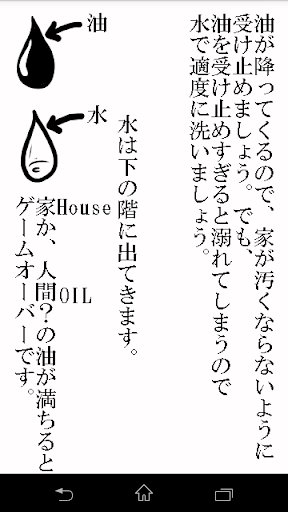 油が降ってくるので、家が汚くならないように
受け止めましょう。でも、
油を受け止めすぎると溺れてしまうので
水で適度に洗いましょう。
水は下の階に出てきます。
油
水
House
OIL
家か、人間？の油が満ちると
ゲームオーバーです。